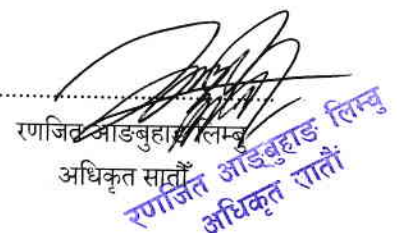 रणजित आङबुहाङ लिम्बु
अधिकृत सातौँ
रणजित आङबुहाङ लिम्बु
अधिकृत सातौं